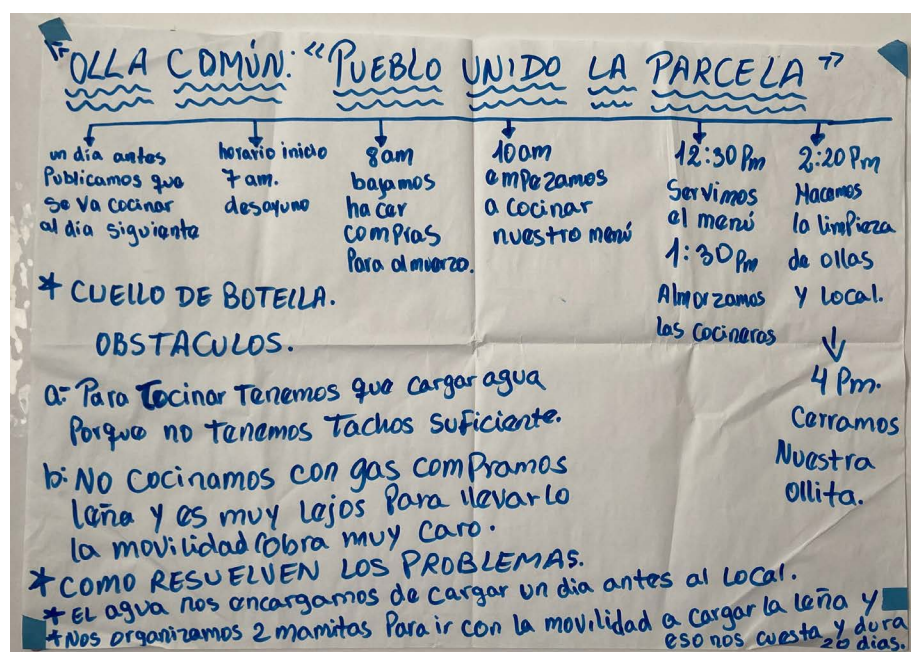 "OLLA COMÚN: "PUEBLO UNIDO LA PARCELA"
un día antes
Publicamos que
se va cocinar
al día siguiente
horario inicio
7 am.
desayuno
8am
bajamos
hacer
compras
Para almuerzo.
10am
empezamos
a cocinar
nuestro menú
12:30 Pm
Servimos
el menú
1:30 Pm
Almorzamos
las cocineras
2:20 Pm
Hacemos
la limpieza
de ollas
y local.
4 Pm.
Cerramos
Nuestra
Ollita.
* CUELLO DE BOTELLA.
OBSTACULOS.
a- Para Cocinar Tenemos que cargar agua
Porque no tenemos Tachos Suficiente.
b: No cocinamos con gas compramos
leña y es muy lejos Para llevarlo
la movilidad cobra muy caro.
* COMO RESUELVEN LOS PROBLEMAS.
* El agua nos encargamos de cargar un dia antes al local.
* Nos organizamos 2 mamitas Para ir con la movilidad a cargar la leña y
eso nos cuesta y dura
20 dias.